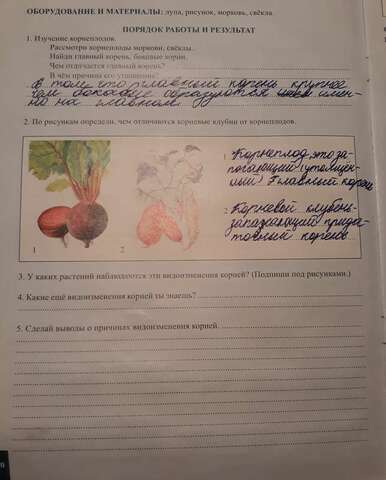 ОБОРУДОВАНИЕ И МАТЕРИАЛЫ: лупа, рисунок, морковь, свёкла.
ПОРЯДОК РАБОТЫ И РЕЗУЛЬТАТ
1. Изучение корнеплодов.
Рассмотри корнеплоды моркови, свёклы.
Найди главный корень, боковые корни.
Чем отличается главный корень?
В чём причина его утолщения?
В том, что главный корень крупнее
чем боковые образуются имен-
но на главном.
2. По рисункам определи, чем отличаются корневые клубни от корнеплодов.
1. Корнеплод, это за-
пасающий (утолщен-
ный) главный корень
2. Корневой клубень-
запасающий прида-
точный корень
1
2
3. У каких растений наблюдаются эти видоизменения корней? (Подпиши под рисунками.)
4. Какие ещё видоизменения корней ты знаешь?
5. Сделай выводы о причинах видоизменения корней.
0